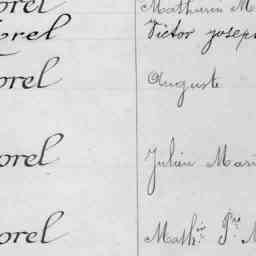 orel Mathurin M
orel Victor Josep
orel Auguste
orel Julien Mari
orel Math.in P.re M